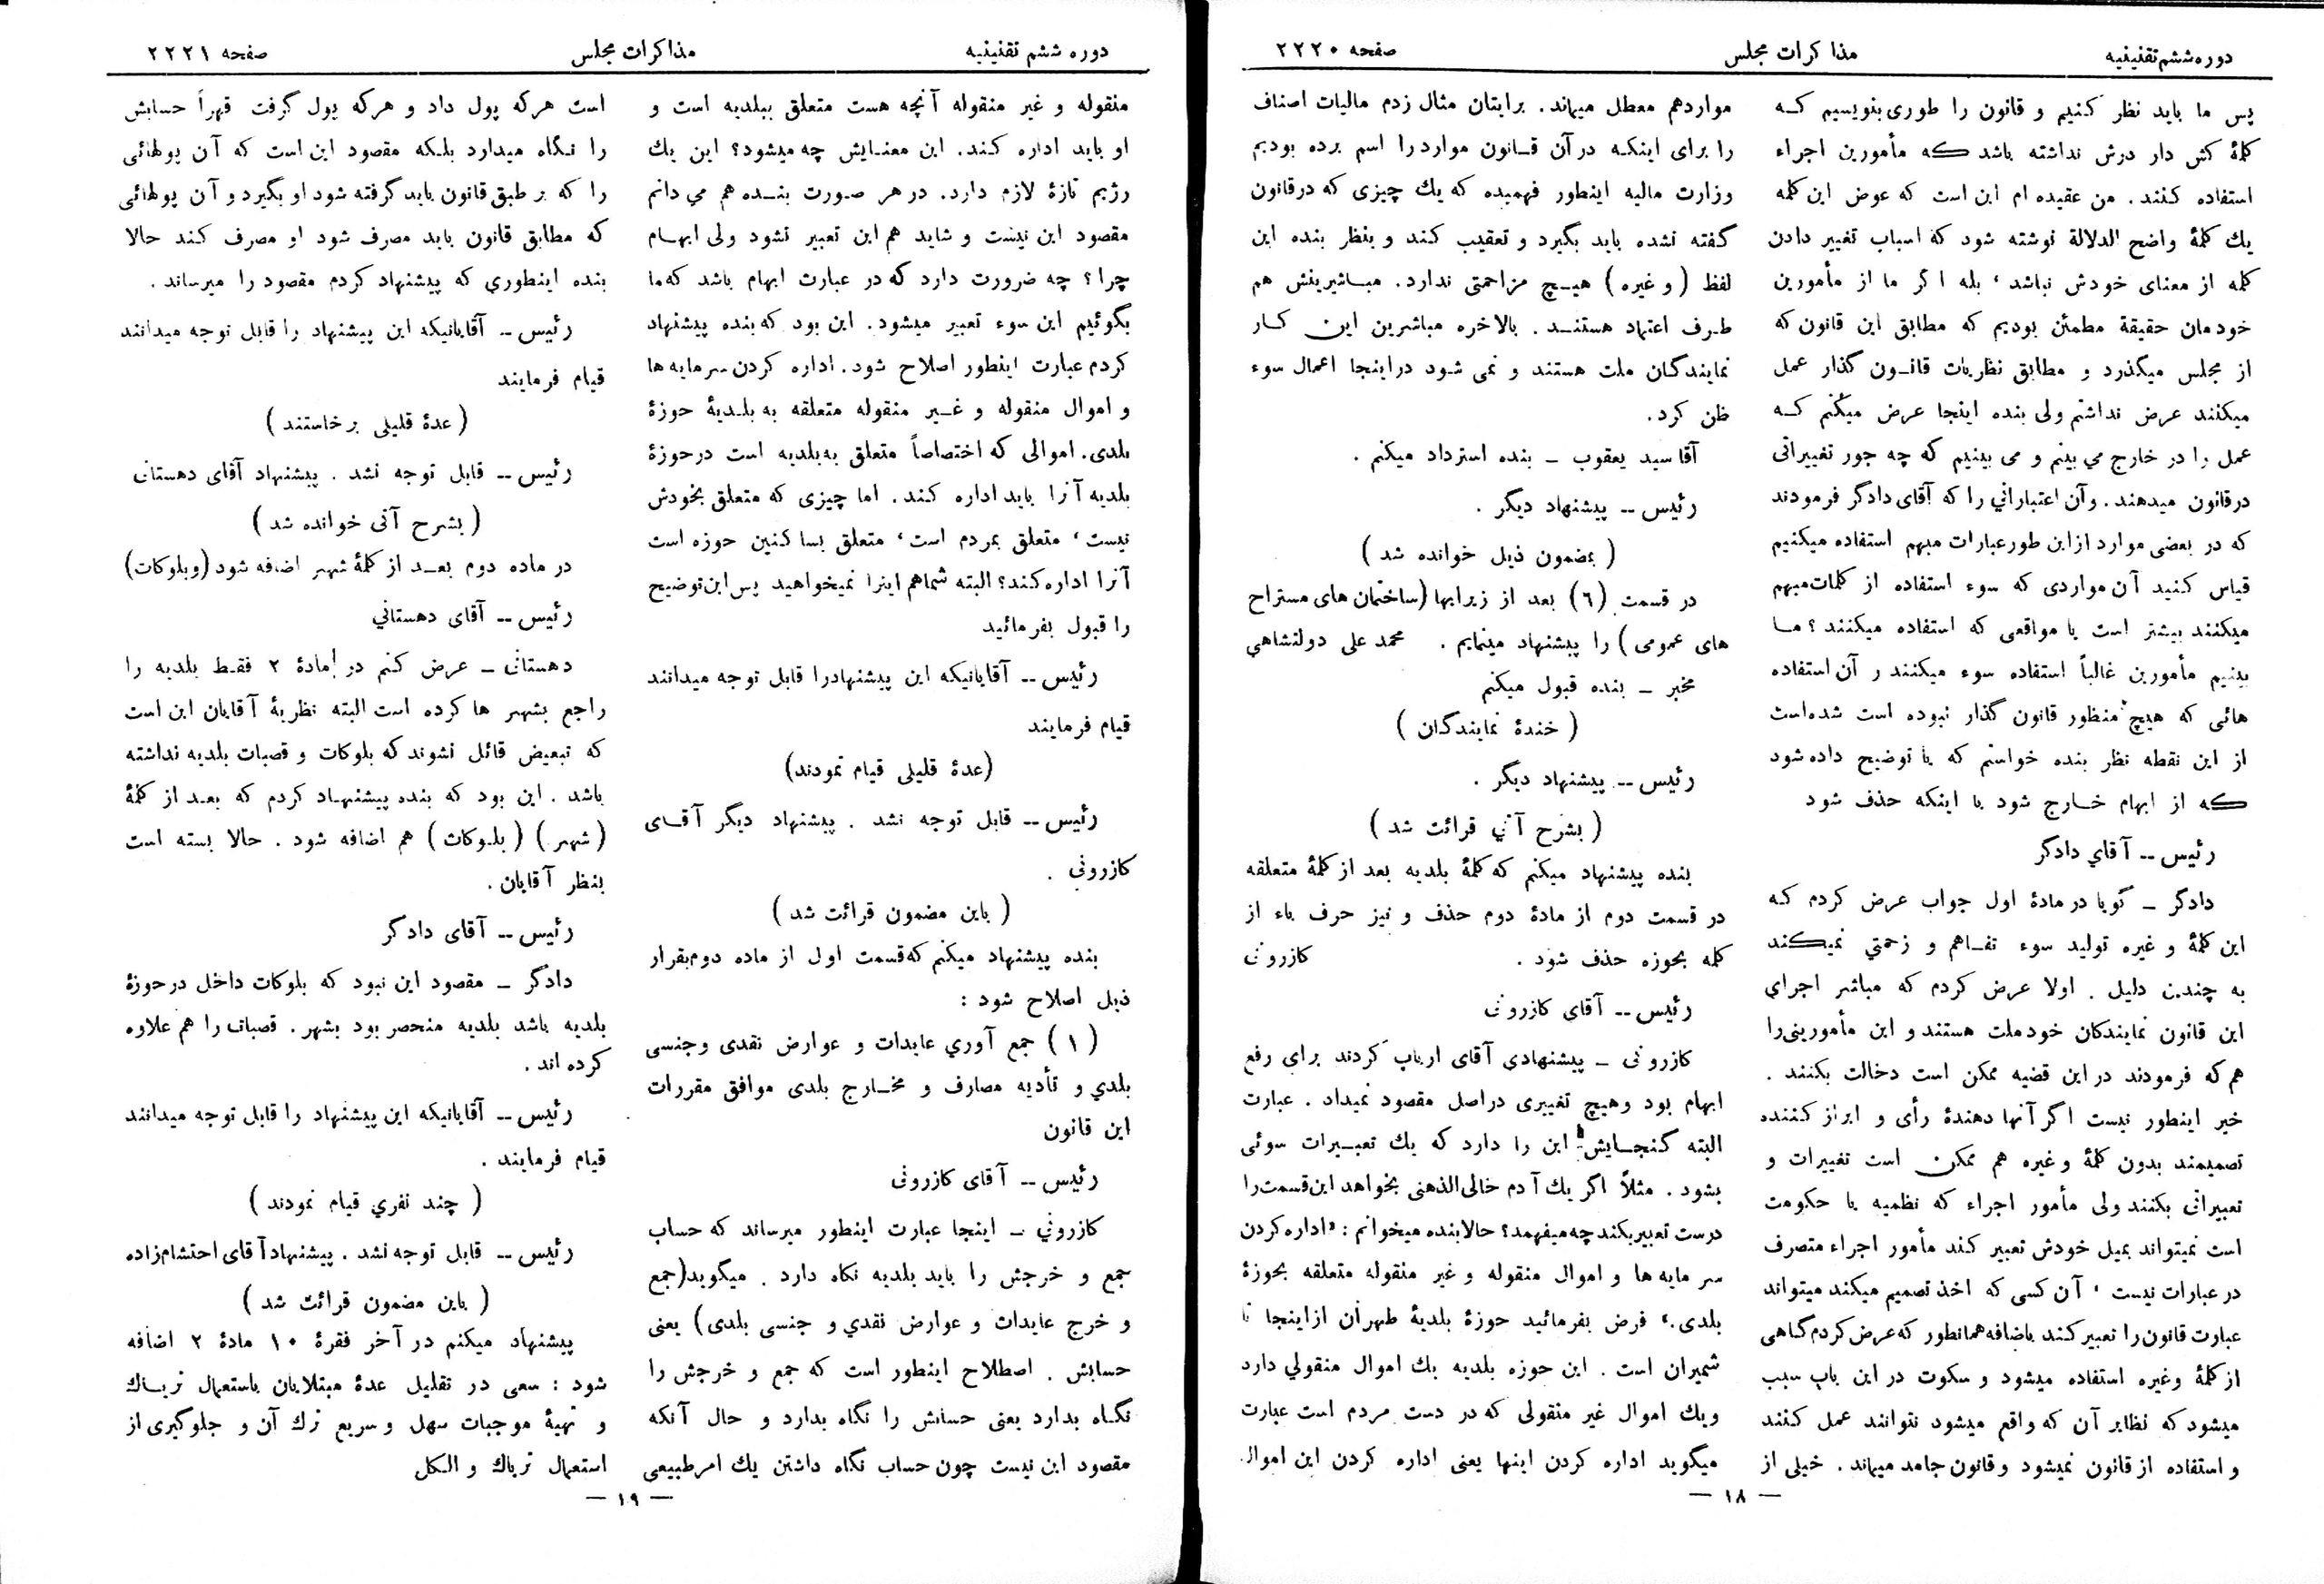 دوره ششم تقنینیه
مذاکرات مجلس
صفحه ۲۲۲۰
پس ما باید نظر کنیم و قانون را طوری بنویسیم که
کلمهٔ کش دار درش نداشته باشد که مأمورین اجراء
استفاده کنند. من عقیده ام این است که عوض این کلمه
یك کلمهٔ واضح الدلالة نوشته شود که اسباب تغییر دادن
کلمه از معنای خودش نباشد، بله اگر ما از مأمورین
خودمان حقیقة مطمئن بودیم که مطابق این قانون که
از مجلس میگذرد و مطابق نظریات قانون گذار عمل
میکنند عرض نداشتم ولی بنده اینجا عرض میکنم که
عمل را در خارج می بینم و می بینیم که چه جور تغییراتی
درقانون میدهند. وآن اعتباراتی را که آقای دادگر فرمودند
که در بعضی موارد ازاین طورعبارات مبهم استفاده میکنیم
قیاس کنید آن مواردی که سوء استفاده از کلمات مبهم
میکنند بیشتر است یا مواقعی که استفاده میکنند؟ ما
بینیم مأمورین غالباً استفاده سوء میکنند و آن استفاده
هائی که هیچ منظور قانون گذار نبوده است شده است
از این نقطه نظر بنده خواستم که یا توضیح داده شود
که از ابهام خارج شود یا اینکه حذف شود
رئیس -- آقای دادگر
دادگر - گویا در مادهٔ اول جواب عرض کردم که
این کلمهٔ و غیره تولید سوء تفاهم و زحمتی نمیکند
به چندین دلیل. اولا عرض کردم که مباشر اجرای
این قانون نمایندکان خود ملت هستند و این مأمورینی را
هم که فرمودند در این قضیه ممکن است دخالت بکنند.
خیر اینطور نیست اگر آنها دهندهٔ رأی و ابراز کننده
تصمیمند بدون کلمهٔ و غیره هم ممکن است تغییرات و
تعبیراتی بکنند ولی مأمور اجراء که نظمیه یا حکومت
است نمیتواند بمیل خودش تعبیر کند مأمور اجراء متصرف
در عبارات نیست، آن کسی که اخذ تصمیم میکند میتواند
عبارت قانون را تعبیر کند باضافه همانطور که عرض کردم گاهی
از کلمهٔ وغیره استفاده میشود و سکوت در این باب سبب
میشود که نظایر آن که واقع میشود نتوانند عمل کنند
و استفاده از قانون نمیشود و قانون جامد میماند. خیلی از
مواردهم معطل میماند. برایتان مثال زدم مالیات اصناف
را برای اینکه درآن قانون موارد را اسم برده بودیم
وزارت مالیه اینطور فهمیده که یك چیزی که درقانون
گفته نشده باید بگیرد و تعقیب کند و بنظر بنده این
لفظ (و غیره) هیچ مزاحمتی ندارد. مباشرینش هم
طرف اعتماد هستند. بالاخره مباشرین این کار
نمایندگان ملت هستند و نمی شود دراینجا اعمال سوء
ظن کرد.
آقا سید یعقوب - بنده استرداد میکنم.
رئیس -- پیشنهاد دیگر.
(بمضمون ذیل خوانده شد)
در قسمت (٦) بعد از زیرابها (ساختمان های مستراح
های عمومی) را پیشنهاد مینمایم. محمد علی دولتشاهی
مخبر - بنده قبول میکنم
(خندهٔ نمایندگان)
رئیس -- پیشنهاد دیگر.
(بشرح آتی قرائت شد)
بنده پیشنهاد میکنم که کلمهٔ بلدیه بعد از کلمهٔ متعلقه
در قسمت دوم از مادهٔ دوم حذف و نیز حرف باء از
کلمه بحوزه حذف شود. کازرونی
رئیس -- آقای کازرونی
کازرونی - پیشنهادی آقای ارباب کردند برای رفع
ابهام بود وهیچ تغییری دراصل مقصود نمیداد. عبارت
البته گنجایش این را دارد که یك تعبیرات سوئی
بشود. مثلاً اگر یك آدم خالی الذهنی بخواهد این قسمت را
درست تعبیر بکند چه میفهمد؟ حالا بنده میخوانم: «اداره کردن
سرمایه ها و اموال منقوله و غیر منقوله متعلقه بحوزهٔ
بلدی.» فرض بفرمائید حوزهٔ بلدیهٔ طهران ازاینجا تا
شمیران است. این حوزه بلدیه یك اموال منقولی دارد
ویك اموال غیر منقولی که در دست مردم است عبارت
میگوید اداره کردن اینها یعنی اداره کردن این اموال.
— ۱۸ —
دوره ششم تقنینیه
مذاکرات مجلس
صفحه ۲۲۲۱
منقوله و غیر منقوله آنچه هست متعلق ببلدیه است و
او باید اداره کند. این معنایش چه میشود؟ این یك
رژیم تازهٔ لازم دارد. در هر صورت بنده هم می دانم
مقصود این نیست و شاید هم این تعبیر نشود ولی ابهام
چرا؟ چه ضرورت دارد که در عبارت ابهام باشد که ما
بگوئیم این سوء تعبیر میشود. این بود که بنده پیشنهاد
کردم عبارت اینطور اصلاح شود. اداره کردن سرمایه ها
و اموال منقوله و غیر منقوله متعلقه به بلدیهٔ حوزهٔ
بلدی. اموالی که اختصاصاً متعلق به بلدیه است درحوزهٔ
بلدیه آنرا باید اداره کند. اما چیزی که متعلق بخودش
نیست، متعلق بمردم است، متعلق بساکنین حوزه است
آنرا اداره کند؟ البته شماهم اینرا نمیخواهید پس این توضیح
را قبول بفرمائید
رئیس -- آقایانیکه این پیشنهادرا قابل توجه میدانند
قیام فرمایند
(عدهٔ قلیلی قیام نمودند)
رئیس -- قابل توجه نشد. پیشنهاد دیگر آقای
کازرونی.
(باین مضمون قرائت شد)
بنده پیشنهاد میکنم که قسمت اول از ماده دوم بقرار
ذیل اصلاح شود:
(۱) جمع آوري عایدات و عوارض نقدی وجنسی
بلدي و تأدیه مصارف و مخارج بلدی موافق مقررات
این قانون
رئیس -- آقای کازرونی
کازرونی - اینجا عبارت اینطور میرساند که حساب
جمع و خرجش را باید بلدیه نگاه دارد. میگوید (جمع
و خرج عایدات و عوارض نقدي و جنسی بلدی) یعنی
حسابش. اصطلاح اینطور است که جمع و خرجش را
نگاه بدارد یعنی حسابش را نگاه بدارد و حال آنکه
مقصود این نیست چون حساب نگاه داشتن یك امر طبیعی
است هرکه پول داد و هرکه پول گرفت قهراً حسابش
را نگاه میدارد بلکه مقصود این است که آن پولهائی
را که بر طبق قانون باید گرفته شود او بگیرد و آن پولهائی
که مطابق قانون باید مصرف شود او مصرف کند حالا
بنده اینطوري که پیشنهاد کردم مقصود را میرساند.
رئیس -- آقایانیکه این پیشنهاد را قابل توجه میدانند
قیام فرمایند
(عدهٔ قلیلی برخاستند)
رئیس -- قابل توجه نشد. پیشنهاد آقای دهستانی
(بشرح آتی خوانده شد)
در ماده دوم بعد از کلمهٔ شهر اضافه شود (وبلوکات)
رئیس -- آقای دهستاني
دهستانی - عرض کنم در مادهٔ ۲ فقط بلدیه را
راجع بشهر ها کرده است البته نظریهٔ آقایان این است
که تبعیض قائل نشوند که بلوکات و قصبات بلدیه نداشته
باشد. این بود که بنده پیشنهاد کردم که بعد از کلمهٔ
(شهر) (بلوکات) هم اضافه شود. حالا بسته است
بنظر آقایان.
رئیس -- آقای دادگر
دادگر - مقصود این نبود که بلوکات داخل درحوزهٔ
بلدیه باشد بلدیه منحصر بود بشهر. قصبات را هم علاوه
کرده اند.
رئیس -- آقایانیکه این پیشنهاد را قابل توجه میدانند
قیام فرمایند.
(چند نفري قیام نمودند)
رئیس -- قابل توجه نشد. پیشنهاد آقای احتشام زاده
(باین مضمون قرائت شد)
پیشنهاد میکنم در آخر فقرهٔ ۱۰ مادهٔ ۲ اضافه
شود: سعی در تقلیل عدهٔ مبتلایان باستعمال تریاك
و تهیهٔ موجبات سهل و سریع ترك آن و جلوگیری از
استعمال تریاك و الکل
— ۱۹ —